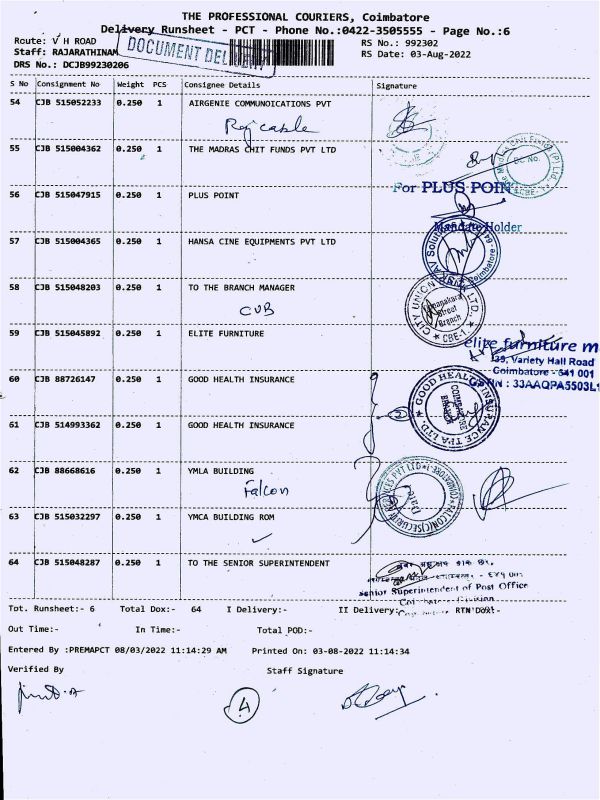 THE PROFESSIONAL COURIERS, Coimbatore
Delivery Runsheet - PCT - Phone No.:0422-3505555 - Page No.:6
Route: V H ROAD
RS No.: 992302
Staff: RAJARATHINAM
RS Date: 03-Aug-2022
DRS No.: DCJB99230206
DOCUMENT DEL
S No Consignment No Weight PCS Consignee Details Signature
54 CJB 515052233 0.250 1 AIRGENIE COMMUNOICATIONS PVT
Raj cable
55 CJB 515004362 0.250 1 THE MADRAS CHIT FUNDS PVT LTD
56 CJB 515047915 0.250 1 PLUS POINT
For PLUS POIN
Mandate Holder
57 CJB 515004365 0.250 1 HANSA CINE EQUIPMENTS PVT LTD
58 CJB 515048203 0.250 1 TO THE BRANCH MANAGER
CUB
CITY UNION LTD.
Street
Branch
CBE-1
59 CJB 515045892 0.250 1 ELITE FURNITURE
elite furniture m
39, Variety Hall Road
Coimbatore - 641 001
: 33AAQPA5503L1
60 CJB 88726147 0.250 1 GOOD HEALTH INSURANCE
GOOD HEALTH INSURANCE TPA LTD.
COIMBATORE
BRANCH
2
61 CJB 514993362 0.250 1 GOOD HEALTH INSURANCE
62 CJB 88668616 0.250 1 YMLA BUILDING
Falcon
Date:
63 CJB 515032297 0.250 1 YMCA BUILDING ROM
64 CJB 515048287 0.250 1 TO THE SENIOR SUPERINTENDENT
Senior Superintendent of Post Office
Tot. Runsheet:- 6 Total Dox:- 64 I Delivery:- II Delivery: RTN Dox:-
Out Time:- In Time:- Total POD:-
Entered By :PREMAPCT 08/03/2022 11:14:29 AM Printed On: 03-08-2022 11:14:34
Verified By Staff Signature
4